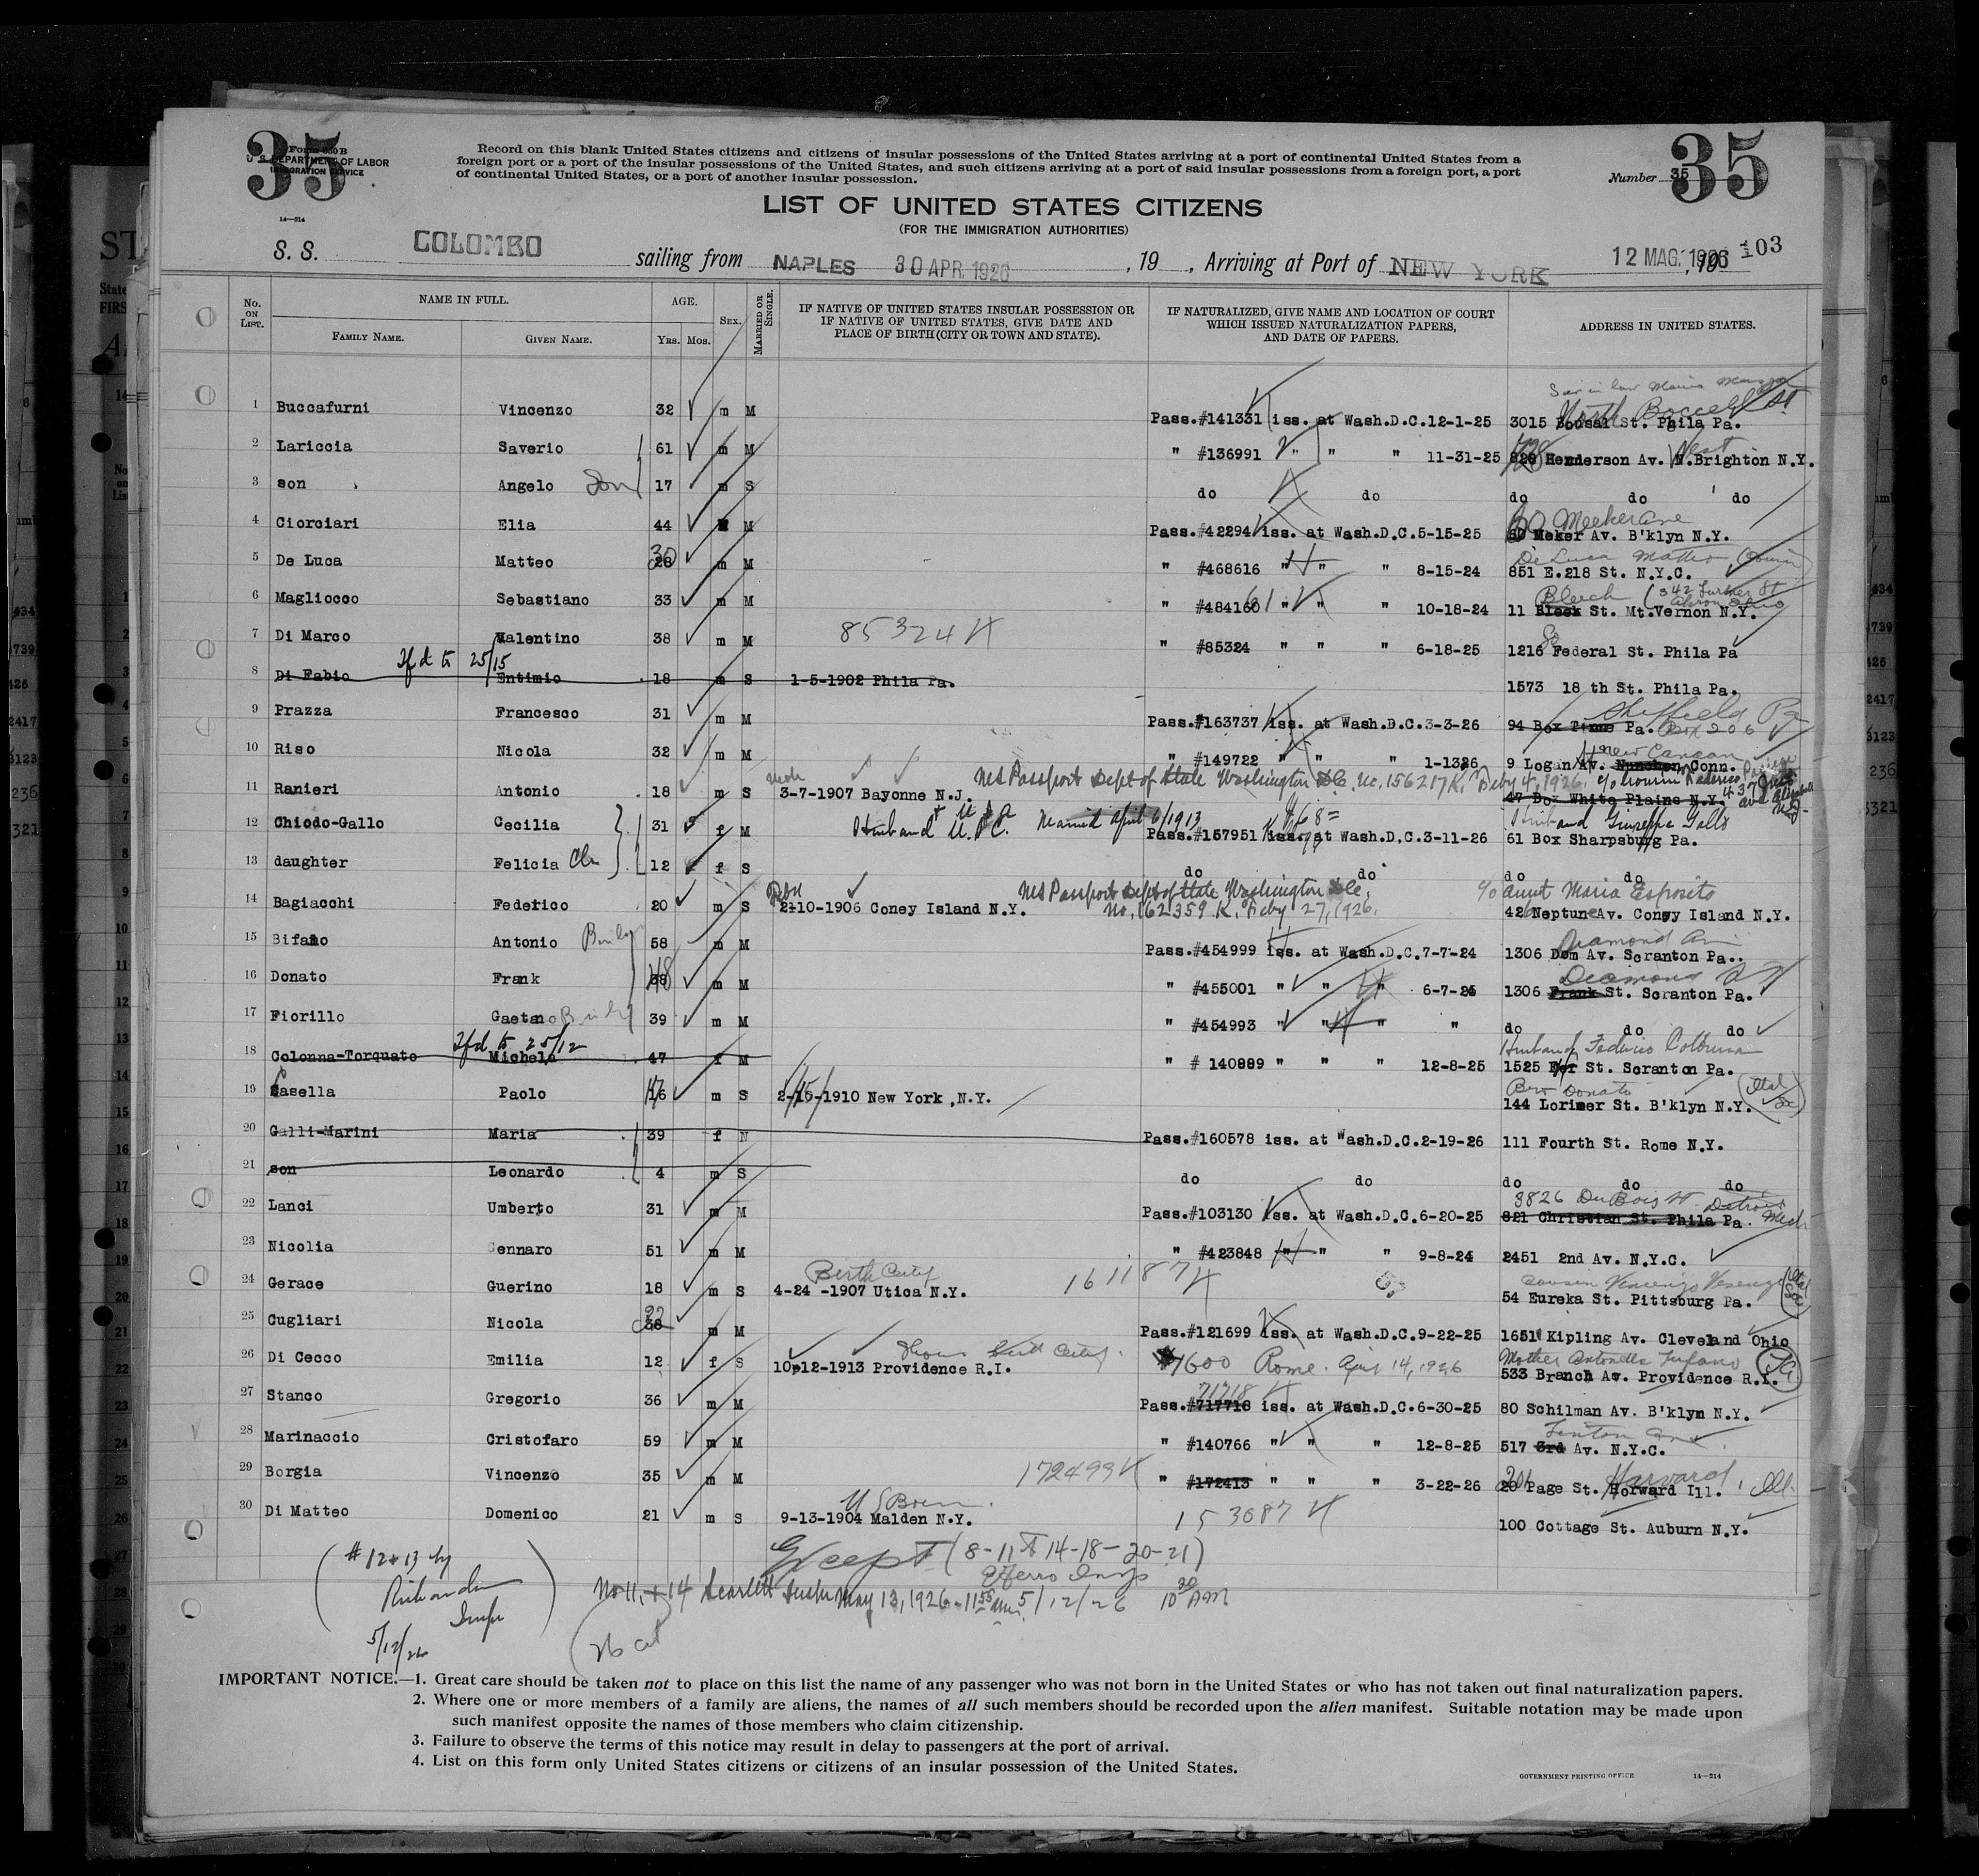 35
Form 630 B
U. S. DEPARTMENT OF LABOR
IMMIGRATION SERVICE
14—214
Record on this blank United States citizens and citizens of insular possessions of the United States arriving at a port of continental United States from a
foreign port or a port of the insular possessions of the United States, and such citizens arriving at a port of said insular possessions from a foreign port, a port
of continental United States, or a port of another insular possession.
Number 35
35
LIST OF UNITED STATES CITIZENS
(FOR THE IMMIGRATION AUTHORITIES)
S. S. COLOMBO sailing from NAPLES 30 APR. 1926, 19 , Arriving at Port of NEW YORK 12 MAG. 1926, 19 103
No. ON LIST. NAME IN FULL. AGE. SEX. MARRIED OR SINGLE. IF NATIVE OF UNITED STATES INSULAR POSSESSION OR IF NATIVE OF UNITED STATES, GIVE DATE AND PLACE OF BIRTH (CITY OR TOWN AND STATE). IF NATURALIZED, GIVE NAME AND LOCATION OF COURT WHICH ISSUED NATURALIZATION PAPERS, AND DATE OF PAPERS. ADDRESS IN UNITED STATES.
FAMILY NAME. GIVEN NAME. Yrs. Mos.
1 Buccafurni Vincenzo 32 m M Pass.#141331 iss. at Wash.D.C.12-1-25 3015 Bousal St. Phila Pa.
2 Lariccia Saverio 61 m M " #136991 " " " 11-31-25 Henderson Av. N.Brighton N.Y. West
3 son Angelo son 17 m S do do do do do
4 Ciorciari Elia 44 M Pass.#42294 iss. at Wash.D.C.5-15-25 60 Meker Av. B'klyn N.Y.
60 Meeker Ave
5 De Luca Matteo 28 30 m M " #468616 " " " 8-15-24 851 E.218 St. N.Y.C.
De Luca Matteo (Cousin)
6 Magliocco Sebastiano 33 m M " #484160 " " " 10-18-24 11 Bleek St. Mt.Vernon N.Y.
Bleech Akron Ohio
7 Di Marco Valentino 38 m M 85324 " #85324 " " " 6-18-25 1216 Federal St. Phila Pa
Tfd to 25/15
8 Di Fabio Entimio 18 m S 1-5-1902 Phila Pa. 1573 18 th St. Phila Pa.
9 Prazza Francesco 31 m M Pass.#163737 iss. at Wash.D.C.3-3-26 94 Box Time Pa. Box 206
Sheffield Pa
10 Riso Nicola 32 m M " #149722 " " " 1-1326 9 Logan Av. Nunchen Conn.
New Canaan
11 Ranieri Antonio 18 m S 3-7-1907 Bayonne N.J. 47 Box White Plains N.Y.
Passport Dept of State Washington D.C. No. 156217 K, Feby 4, 1926.
12 Chiodo-Gallo Cecilia 31 f M Pass.#157951 iss. at Wash.D.C.3-11-26 61 Box Sharpsburg Pa.
Husband Married April 6/1913 Husband Giuseppe Gallo
13 daughter Felicia 12 f S do do do do
14 Bagiacchi Federico 20 m S 2-10-1906 Coney Island N.Y. 42 Neptune Av. Coney Island N.Y.
Passport Dept of State Washington D.C. No. 162359 K. Feby 27, 1926. c/o Aunt Maria Esposito
15 Bifano Antonio 58 m M Pass.#454999 iss. at Wash.D.C.7-7-24 1306 Dom Av. Scranton Pa..
Diamond Av
16 Donato Frank 38 48 m M " #455001 " " " 6-7-24 1306 Frank St. Scranton Pa.
Diamond
17 Fiorillo Gaetano 39 m M " #454993 " " " do do do
Tfd to 25/12
18 Colonna-Torquato Michela 47 f M " # 140889 " " " 12-8-25 1525 St. Scranton Pa.
Husband Federico Colonna
19 Casella Paolo 16 m S 2-15-1910 New York ,N.Y. 144 Lorimer St. B'klyn N.Y.
Bro Donato
20 Galli-Marini Maria 39 f N Pass.#160578 iss. at Wash.D.C.2-19-26 111 Fourth St. Rome N.Y.
21 son Leonardo 4 m S do do do do do
22 Lanci Umberto 31 m M Pass.#103130 iss. at Wash.D.C.6-20-25 821 Christian St. Phila Pa.
3826 DuBois St Detroit Mich
23 Nicolia Gennaro 51 m M " #423848 " " " 9-8-24 2451 2nd Av. N.Y.C.
24 Gerace Guerino 18 m S 4-24 -1907 Utica N.Y. 161187 54 Eureka St. Pittsburg Pa.
Birth Certif Cousin Vincenzo
25 Cugliari Nicola 38 m M Pass.#121699 iss. at Wash.D.C.9-22-25 1651 Kipling Av. Cleveland Ohio
26 Di Cecco Emilia 12 f S 10-12-1913 Providence R.I. 1600 Rome. April 14, 1926 533 Branch Av. Providence R.I.
Shows birth Certif. Mother Antonetta
27 Stanco Gregorio 36 m M Pass.#717718 iss. at Wash.D.C.6-30-25 80 Schilman Av. B'klyn N.Y.
71718
28 Marinaccio Cristofaro 59 m M " #140766 " " " 12-8-25 517 3rd Av. N.Y.C.
29 Borgia Vincenzo 35 m M 172493 " #172413 " " " 3-22-26 20 Page St. Horward Ill.
201 Harvard, Ill.
30 Di Matteo Domenico 21 m S 9-13-1904 Malden N.Y. 153087 100 Cottage St. Auburn N.Y.
U S Born
Except (8-11-14-18-20-21)
# 12 & 13 by
5/12/26
No 11, + 14 May 13, 1926 5/12/26 10 30 AM
IMPORTANT NOTICE.—1. Great care should be taken not to place on this list the name of any passenger who was not born in the United States or who has not taken out final naturalization papers.
2. Where one or more members of a family are aliens, the names of all such members should be recorded upon the alien manifest. Suitable notation may be made upon
such manifest opposite the names of those members who claim citizenship.
3. Failure to observe the terms of this notice may result in delay to passengers at the port of arrival.
4. List on this form only United States citizens or citizens of an insular possession of the United States.
GOVERNMENT PRINTING OFFICE 14—214